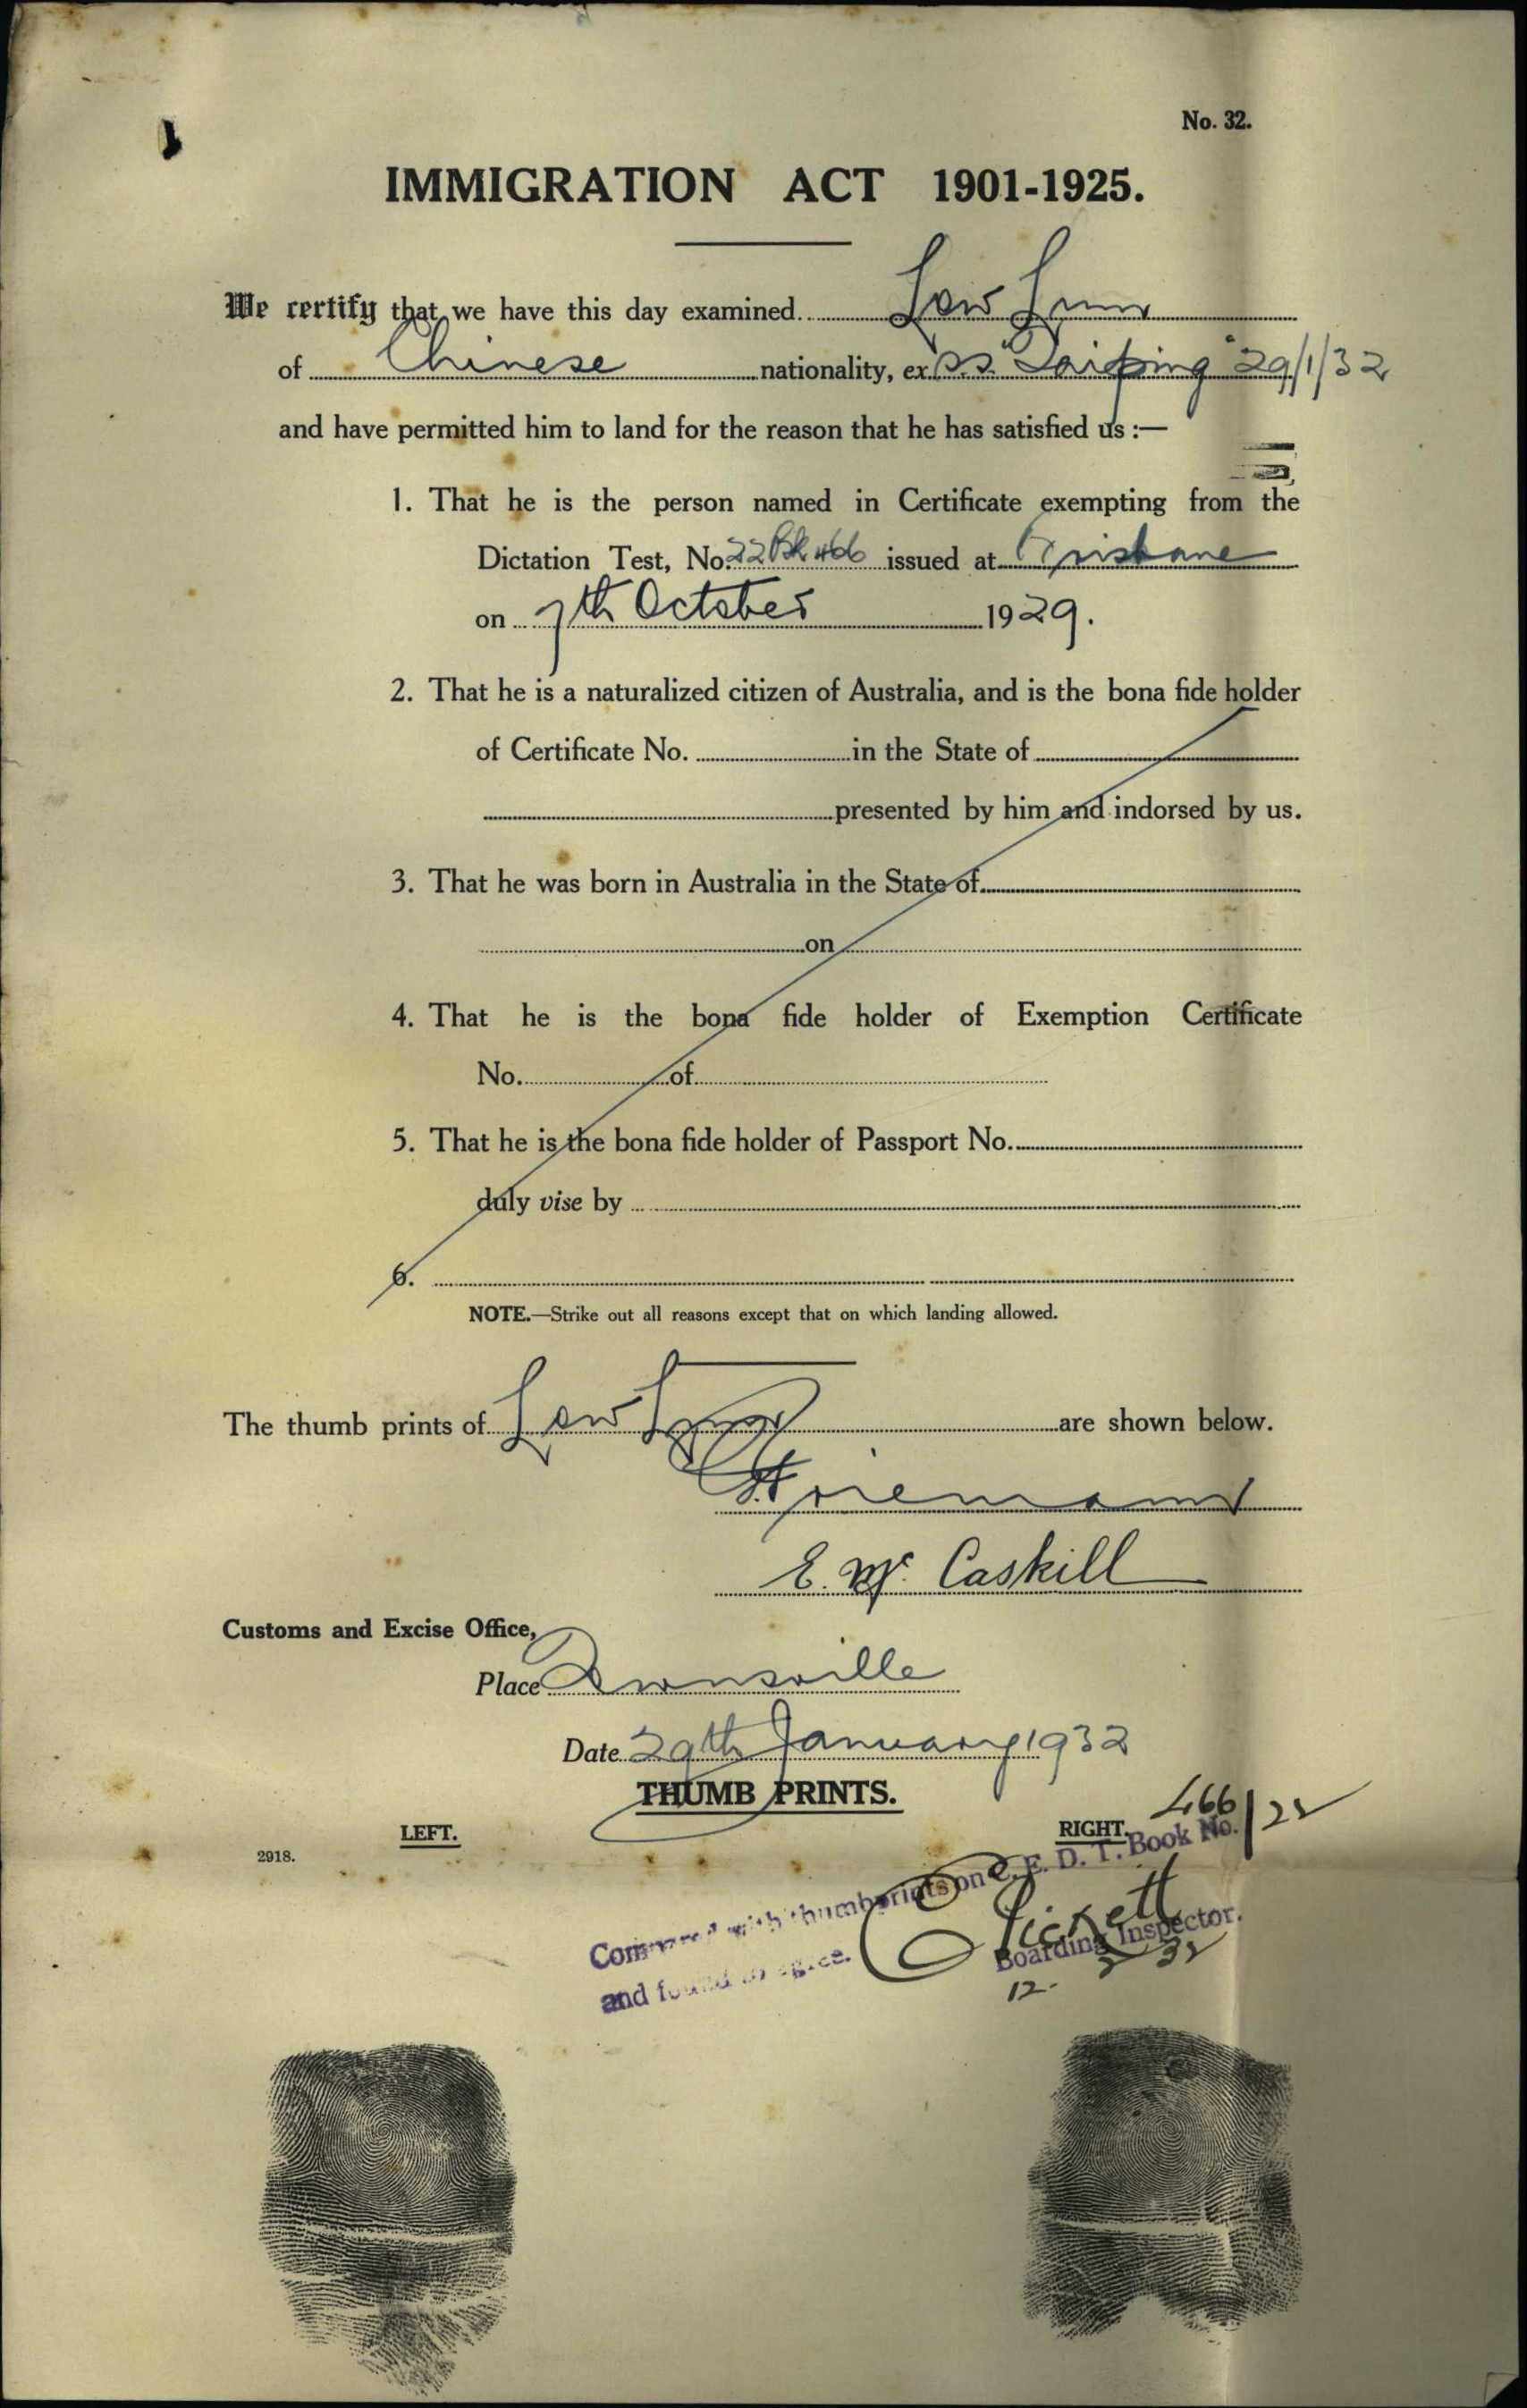 No. 32.
IMMIGRATION ACT 1901-1925.
We certify that we have this day examined Low Lum
of Chinese nationality, ex S.S. "Taiping" 29/1/32
and have permitted him to land for the reason that he has satisfied us :—
1. That he is the person named in Certificate exempting from the
Dictation Test, No. 22 Bk 466 issued at Brisbane
on 7th October 1929.
2. That he is a naturalized citizen of Australia, and is the bona fide holder
of Certificate No. in the State of
presented by him and indorsed by us.
3. That he was born in Australia in the State of
on
4. That he is the bona fide holder of Exemption Certificate
No. of
5. That he is the bona fide holder of Passport No.
duly vise by
6.
NOTE.—Strike out all reasons except that on which landing allowed.
The thumb prints of Low Lum are shown below.
E. Mc. Caskill
Customs and Excise Office,
Place Townsville
Date 29th January 1932
THUMB PRINTS.
LEFT.
RIGHT.
2918.
466/22
Compared with thumbprints on C. E. D. T. Book No.
and found to agree.
Boarding Inspector.
12-2-32